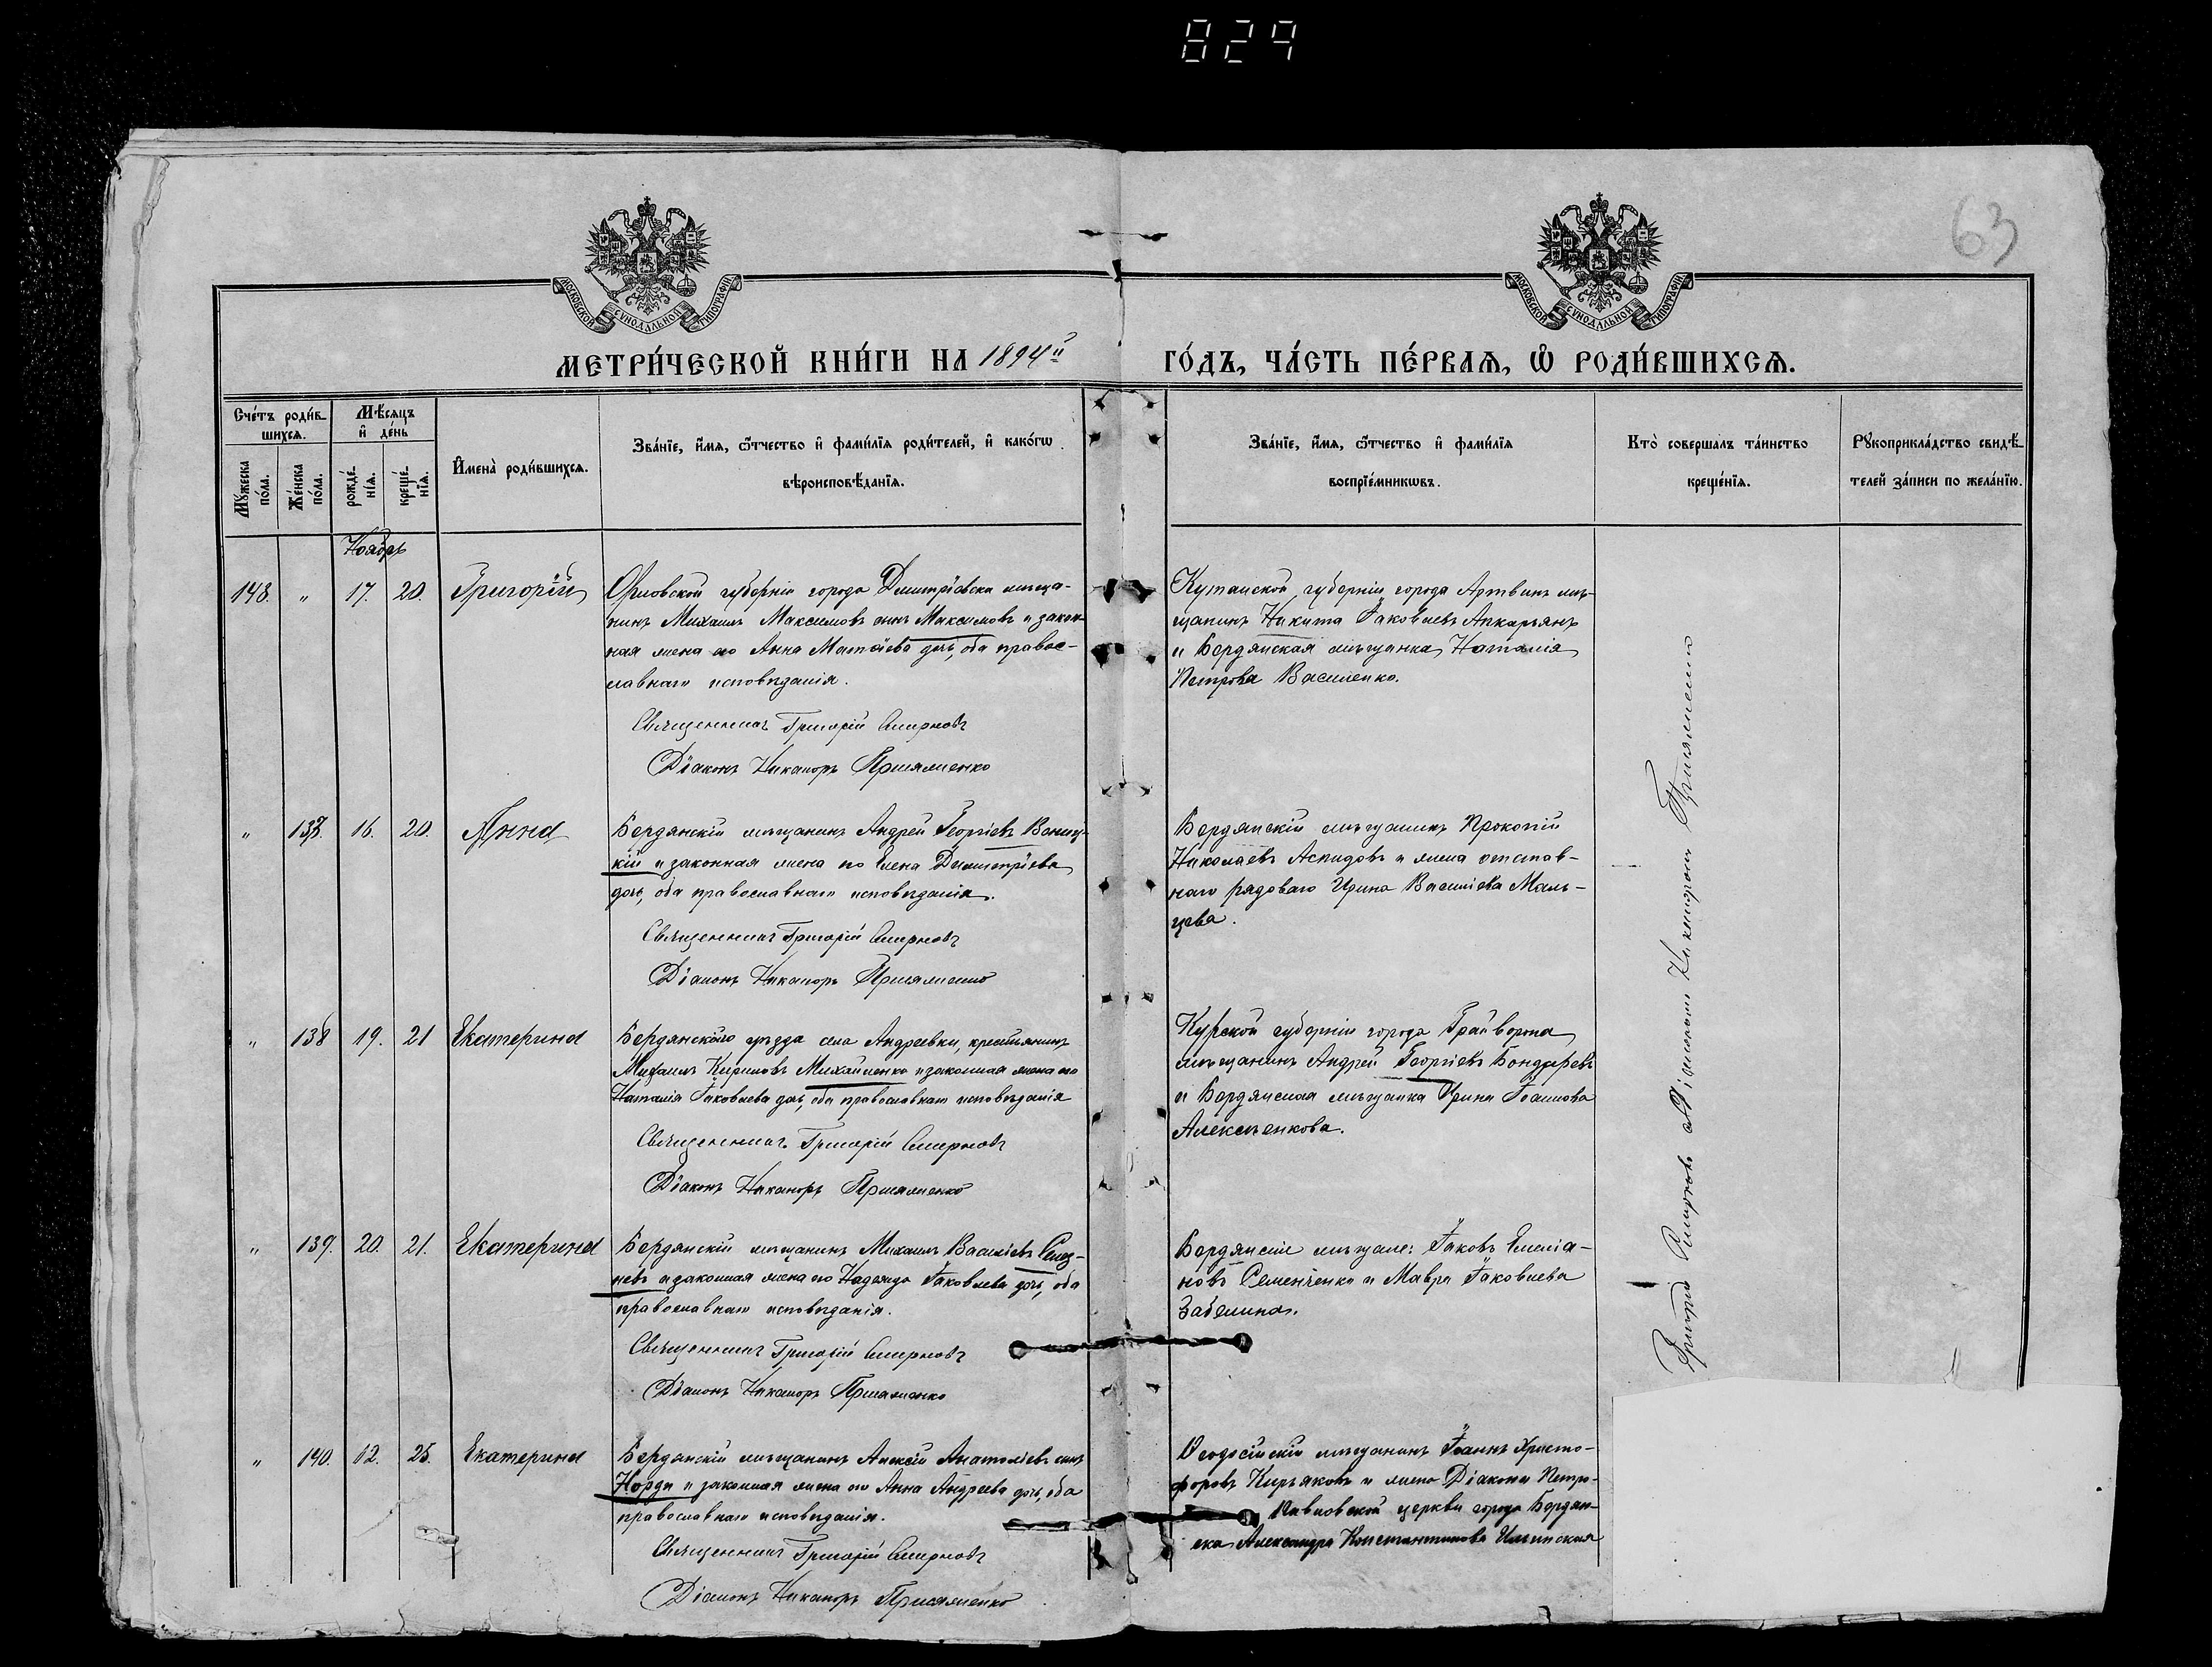 829
63
МОСКОВСКОЙ СУНОДАЛЬНОЙ ТИПОГРАФІИ.
МОСКОВСКОЙ СУНОДАЛЬНОЙ ТИПОГРАФІИ.
МЕТРИ́ЧЕСКОЙ КНИ́ГИ НА 1894й ГО́ДЪ, ЧА́СТЬ ПЕ́РВАѦ, Ѡ РОДИ́ВШИХСѦ.
Сче́тъ роди́в-
шихсѧ.
Мꙋ́жеска
по́ла.
Же́нска
по́ла.
Мѣ́сяцъ
и де́нь
рожде́-
нїѧ.
креще́-
нїѧ.
Имена̀ роди́вшихсѧ.
Зва́нїе, и́мѧ, ѻ́тчество и фами́лїѧ роди́телей, и како́гѡ
вѣроисповѣ́данїѧ.
Зва́нїе, и́мѧ, ѻ́тчество и фами́лїѧ
воспрїе́мникѡвъ.
Кто̀ соверша́лъ та́инство
креще́нїѧ.
Рꙋкоприкла́дство свидѣ́-
телей за́писи по жела́нїю.
Ноябрь
148. " 17. 20. Григорій
Орловской губерніи города Дмитріевска мѣща-
нинъ Михаилъ Максимовъ сынъ Максимовъ и закон-
ная жена его Анна Матѳіева дочь, оба правос-
лавнаго исповѣданія.
Священникъ Григорій Смирновъ
Діаконъ Никаноръ Присяженко
Кутаиской губерніи города Артвинъ мѣ-
щанинъ Никита Іаковлевъ Апкарьянъ
и Бердянская мѣщанка Наталія
Петрова Василенко.
" 137. 16. 20. Анна
Бердянскій мѣщанинъ Андрей Георгіевъ
кій и законная жена его Елена Димитріева
дочь, оба православнаго исповѣданія.
Священникъ Григорій Смирновъ
Діаконъ Никаноръ Присяженко
Бердянскій мѣщанинъ Прокопій
Николаевъ Аспидовъ и жена отстав-
наго рядоваго Ирина Василіева Маль-
цева.
" 138 19. 21 Екатерина
Бердянскаго уѣзда села Андреевки, крестьянинъ
Михаилъ Кириловъ Михайленко и законная жена его
Наталія Іаковлева дочь, оба православнаго исповѣданія
Священникъ Григорій Смирновъ
Діаконъ Никаноръ Присяженко
Курской губерніи города Грайворона
мѣщанинъ Андрей Георгіевъ Бондаревъ
и Бердянская мѣщанка Ирина Іоаннова
Алексѣенкова.
" 139. 20. 21. Екатерина
Бердянскій мѣщанинъ Михаилъ Василіевъ Селез-
невъ и законная жена его Надежда Іаковлева дочь, оба
православнаго исповѣданія.
Священникъ Григорій Смирновъ
Діаконъ Никаноръ Присяженко
Бердянскіе мѣщане: Іаковъ Емеліа-
новъ Семенченко и Мавра Іаковлева
Забелина.
" 140. 12. 25. Екатерина
Бердянскій мѣщанинъ Алексій Анатоліевъ сынъ
Норди и законная жена его Анна Андреева дочь, оба
православнаго исповѣданія.
Священникъ Григорій Смирновъ
Діаконъ Никаноръ Присяженко
Ѳеодосійскій мѣщанинъ Іоаннъ Христо-
форовъ Кирьяковъ и жена Діакона Петро-
Павловской церкви города Бердян-
ска Александра Константинова Ильинская
Григорій Смирновъ съ Діакономъ Никаноромъ Присяженко